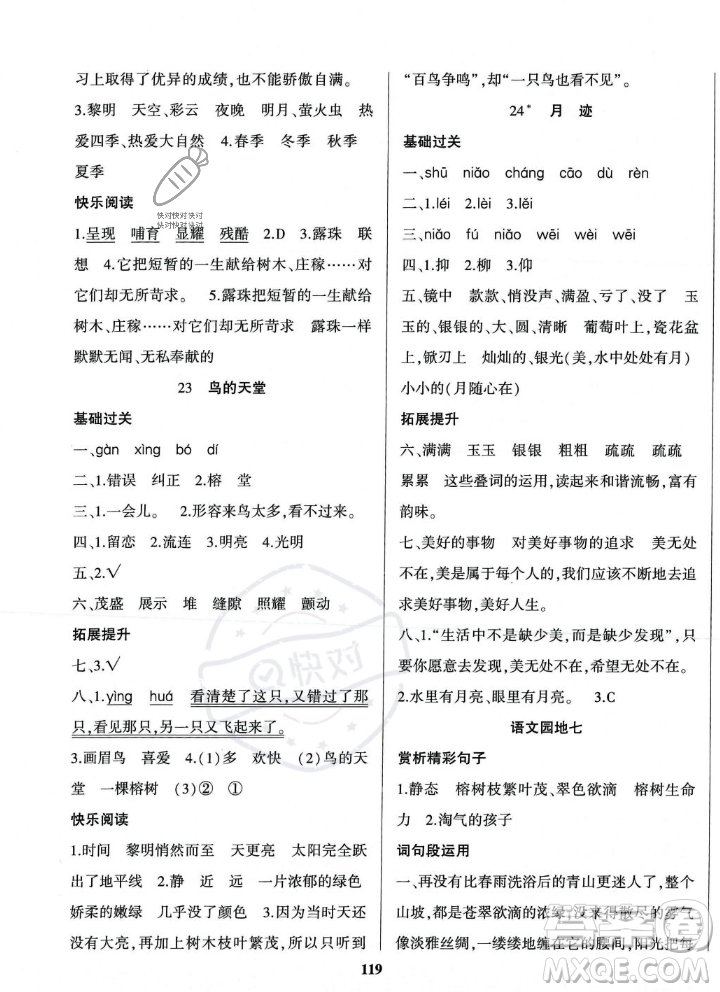 习上取得了优异的成绩,也不能骄傲自满。
3.黎明 天空、彩云 夜晚 明月、萤火虫 热
爱四季、热爱大自然 4.春季 冬季 秋季
夏季
快乐阅读
快对快对快对
快对快对快对
1.呈现 哺育 显耀 残酷 2.D 3.露珠 联
想 4.它把短暂的一生献给树木、庄稼……对
它们却无所苛求。 5.露珠把短暂的一生献给
树木、庄稼……对它们却无所苛求 露珠一样
默默无闻、无私奉献的
23 鸟的天堂
基础过关
一、gàn xìng bó dí
二、1.错误 纠正 2.榕 堂
三、1.一会儿。 2.形容来鸟太多,看不过来。
四、1.留恋 2.流连 3.明亮 4.光明
五、2.√
六、茂盛 展示 堆 缝隙 照耀 颤动
拓展提升
七、3.√
八、1.yìng huá 看清楚了这只,又错过了那
只,看见那只,另一只又飞起来了。
3.画眉鸟 喜爱 4.(1)多 欢快 (2)鸟的天
堂 一棵榕树 (3)② ①
快乐阅读
1.时间 黎明悄然而至 天更亮 太阳完全跃
出了地平线 2.静 近 远 一片浓郁的绿色
娇柔的嫩绿 几乎没了颜色 3.因为此时天还
没有大亮,再加上树木枝叶繁茂,所以只听到
“百鸟争鸣”,却“一只鸟也看不见”。
24* 月 迹
基础过关
一、shū niǎo cháng cāo dù rèn
二、1.léi 2.lèi 3.lěi
三、niǎo fú niǎo wēi wēi
四、1.抑 2.柳 3.仰
五、镜中 款款、悄没声、满盈、亏了、没了 玉
玉的、银银的、大、圆、清晰 葡萄叶上,瓷花盆
上,锨刃上 灿灿的、银光(美,水中处处有月)
小小的(月随心在)
拓展提升
六、满满 玉玉 银银 粗粗 疏疏 疏疏
累累 这些叠词的运用,读起来和谐流畅,富有
韵味。
七、美好的事物 对美好的事物的追求 美无
处不在。我们应该用自己的努力不断地去追
求美好事物,美好人生。
八、1.“生活中不是缺少美,而是缺少发现”,只
要善于发现,美无处不在,希望无处不在。
2.水里有月亮、眼里有月亮。 3.C
语文园地七
赏析精彩句子
1.静态 榕树枝繁叶茂、翠色欲滴 榕树生命
力 2.淘气的孩子
词句段运用
一、再没有比春雨洗浴后的青山更迷人了,整个
山坡,都是苍翠欲滴的浓绿,没来得散尽的雾气
像淡雅丝绸,一缕缕地缠在它的腰间,阳光把每
119
快对
MXQE.COM